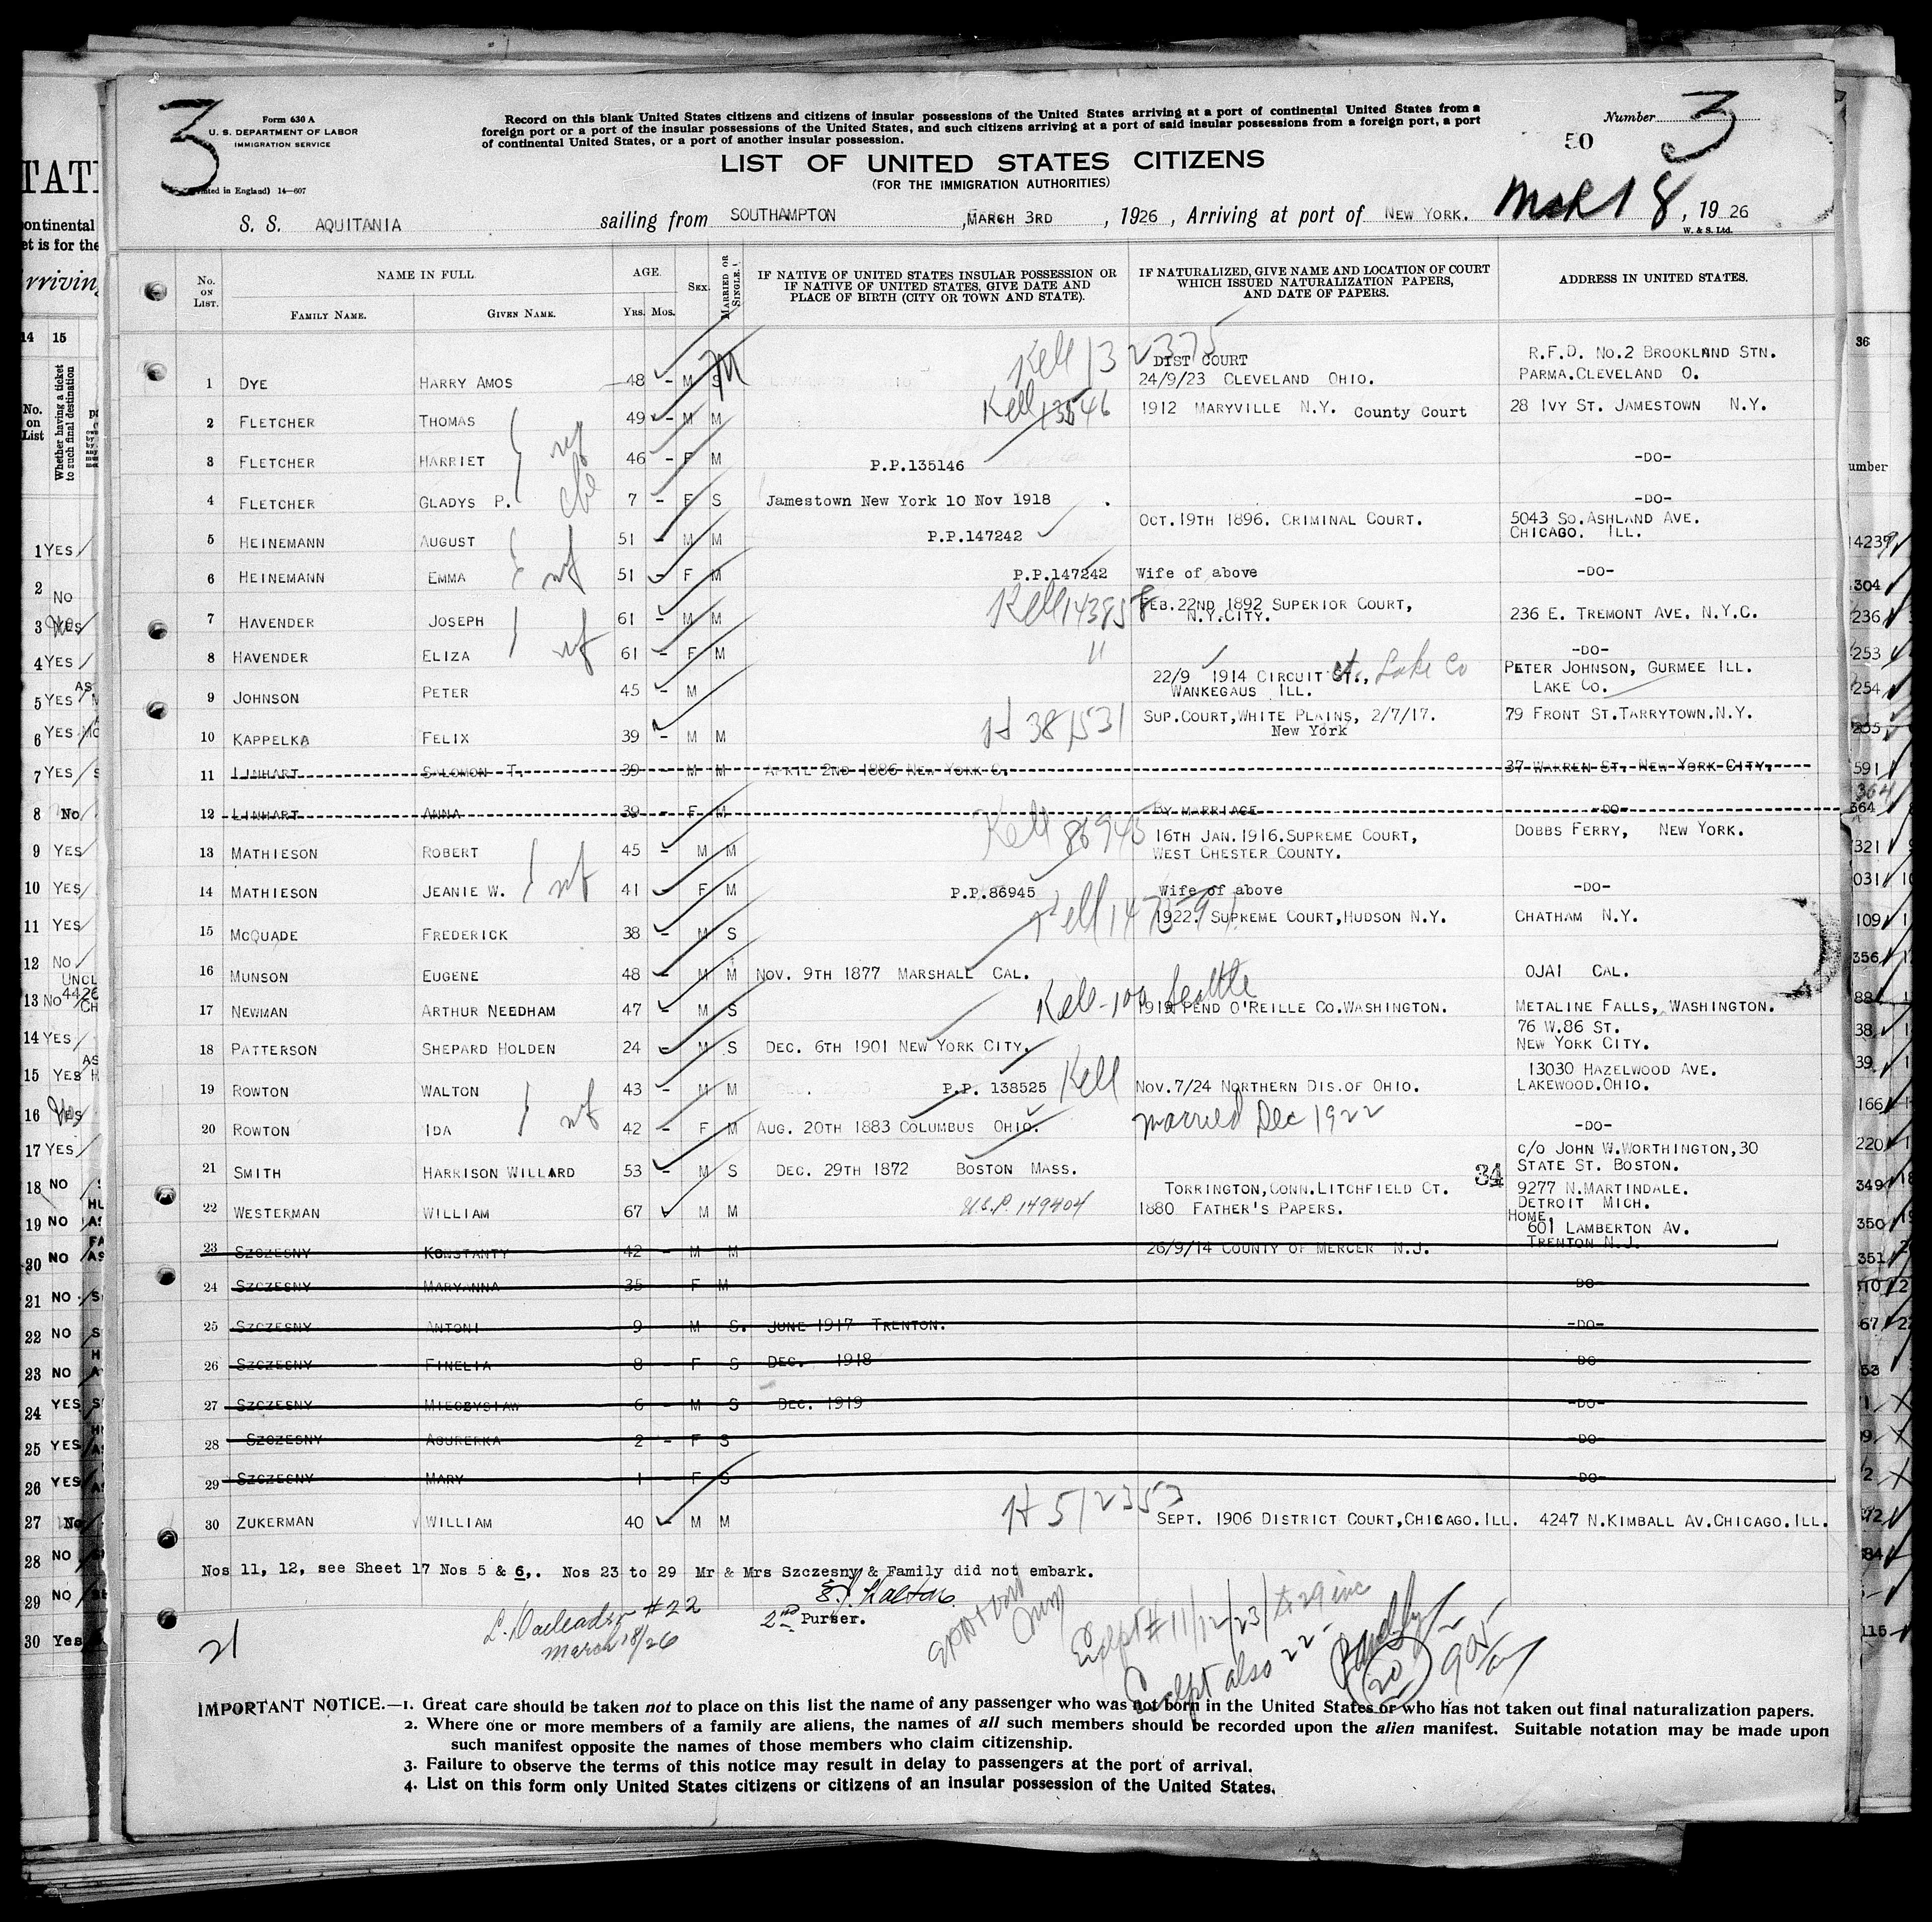 3
Form 630 A
U. S. DEPARTMENT OF LABOR
IMMIGRATION SERVICE
(Printed in England) 14—607
Record on this blank United States citizens and citizens of insular possessions of the United States arriving at a port of continental United States from a
foreign port or a port of the insular possessions of the United States, and such citizens arriving at a port of said insular possessions from a foreign port, a port
of continental United States, or a port of another insular possession.
Number 3
50
LIST OF UNITED STATES CITIZENS
(FOR THE IMMIGRATION AUTHORITIES)
S. S. AQUITANIA sailing from SOUTHAMPTON, MARCH 3RD, 1926, Arriving at port of NEW YORK. Mar 18, 1926
W. & S. Ltd.
No. ON LIST. NAME IN FULL. FAMILY NAME. GIVEN NAME. AGE. Yrs. Mos. SEX. MARRIED OR SINGLE.
IF NATIVE OF UNITED STATES INSULAR POSSESSION OR
IF NATIVE OF UNITED STATES, GIVE DATE AND
PLACE OF BIRTH (CITY OR TOWN AND STATE).
IF NATURALIZED, GIVE NAME AND LOCATION OF COURT
WHICH ISSUED NATURALIZATION PAPERS,
AND DATE OF PAPERS.
ADDRESS IN UNITED STATES.
Kell 132375 DIST COURT R.F.D. NO.2 BROOKLAND STN.
1 DYE HARRY AMOS 48 - M S M 24/9/23 CLEVELAND OHIO. PARMA.CLEVELAND O.
2 FLETCHER THOMAS 49 - M M Kell 1912 MARYVILLE N.Y. County Court 28 IVY ST. JAMESTOWN N.Y.
3 FLETCHER HARRIET 46 - F M P.P.135146 -DO-
4 FLETCHER GLADYS P. 7 - F S Jamestown New York 10 Nov 1918 . -DO-
OCT.19TH 1896. CRIMINAL COURT. 5043 SO.ASHLAND AVE.
5 HEINEMANN AUGUST 51 - M M P.P.147242 CHICAGO. ILL.
6 HEINEMANN EMMA 51 - F M P.P.147242 Wife of above -DO-
Kell 143958 FEB.22ND 1892 SUPERIOR COURT,
7 HAVENDER JOSEPH 61 - M M N.Y.CITY. 236 E. TREMONT AVE. N.Y.C.
8 HAVENDER ELIZA 61 - F M " -DO-
22/9 1914 CIRCUIT Ct., Lake Co PETER JOHNSON, GURMEE ILL.
9 JOHNSON PETER 45 - M WANKEGAUS ILL. LAKE CO.
H 381531 SUP.COURT,WHITE PLAINS, 2/7/17. 79 FRONT ST.TARRYTOWN.N.Y.
10 KAPPELKA FELIX 39 - M M New York
11 LINHART SALOMON T. 39 - M M APRIL 2ND 1886 NEW YORK C. 37 WARREN ST. NEW YORK CITY.
12 LINHART ANNA 39 - F M BY MARRIAGE -DO-
Kell 86945 16TH JAN.1916.SUPREME COURT, DOBBS FERRY, NEW YORK.
13 MATHIESON ROBERT 45 - M M WEST CHESTER COUNTY.
14 MATHIESON JEANIE W. 41 - F M P.P.86945 Wife of above -DO-
Kell 1922. SUPREME COURT,HUDSON N.Y. CHATHAM N.Y.
15 MCQUADE FREDERICK 38 - M S
16 MUNSON EUGENE 48 - M M NOV. 9TH 1877 MARSHALL CAL. OJAI CAL.
Seattle
17 NEWMAN ARTHUR NEEDHAM 47 - M S PEND O'REILLE CO.WASHINGTON. METALINE FALLS, WASHINGTON.
76 W.86 ST.
18 PATTERSON SHEPARD HOLDEN 24 - M S DEC. 6TH 1901 NEW YORK CITY. NEW YORK CITY.
13030 HAZELWOOD AVE.
19 ROWTON WALTON 43 - M M P.P. 138525 Kell Nov.7/24 NORTHERN DIS.OF OHIO. LAKEWOOD.OHIO.
20 ROWTON IDA 42 - F M AUG. 20TH 1883 COLUMBUS OHIO. married Dec 1922 -DO-
C/O JOHN W.WORTHINGTON,30
21 SMITH HARRISON WILLARD 53 - M S DEC. 29TH 1872 BOSTON MASS. 34 STATE ST. BOSTON.
TORRINGTON,CONN.LITCHFIELD CT. 9277 N.MARTINDALE.
22 WESTERMAN WILLIAM 67 M M U.S.P. 149404 1880 FATHER'S PAPERS. DETROIT MICH.
HOME.
601 LAMBERTON AV.
23 SZCZESNY KONSTANTY 42 - M M 26/9/14 COUNTY OF MERCER N.J. TRENTON N.J.
24 SZCZESNY MARYANNA 35 F M -DO-
25 SZCZESNY ANTONI 9 M S. JUNE 1917 TRENTON. -DO-
26 SZCZESNY FINELIA 8 - F S DEC. 1918 DO
27 SZCZESNY 6 - M S DEC. 1919 -DO-
28 SZCZESNY 2 - F S -DO-
29 SZCZESNY MARY 1 - F S -DO-
H 512353
30 ZUKERMAN WILLIAM 40 - M M SEPT. 1906 DISTRICT COURT,CHICAGO.ILL. 4247 N.KIMBALL AV.CHICAGO.ILL.
Nos 11, 12, see Sheet 17 Nos 5 & 6,. Nos 23 to 29 Mr & Mrs Szczesny & Family did not embark.
2nd Purser.
#22
March 18/26
21
Except # 11/12/23/ to 29 inc
Except also 22
20
905
IMPORTANT NOTICE.—1. Great care should be taken not to place on this list the name of any passenger who was not born in the United States or who has not taken out final naturalization papers.
2. Where one or more members of a family are aliens, the names of all such members should be recorded upon the alien manifest. Suitable notation may be made upon
such manifest opposite the names of those members who claim citizenship.
3. Failure to observe the terms of this notice may result in delay to passengers at the port of arrival.
4. List on this form only United States citizens or citizens of an insular possession of the United States.